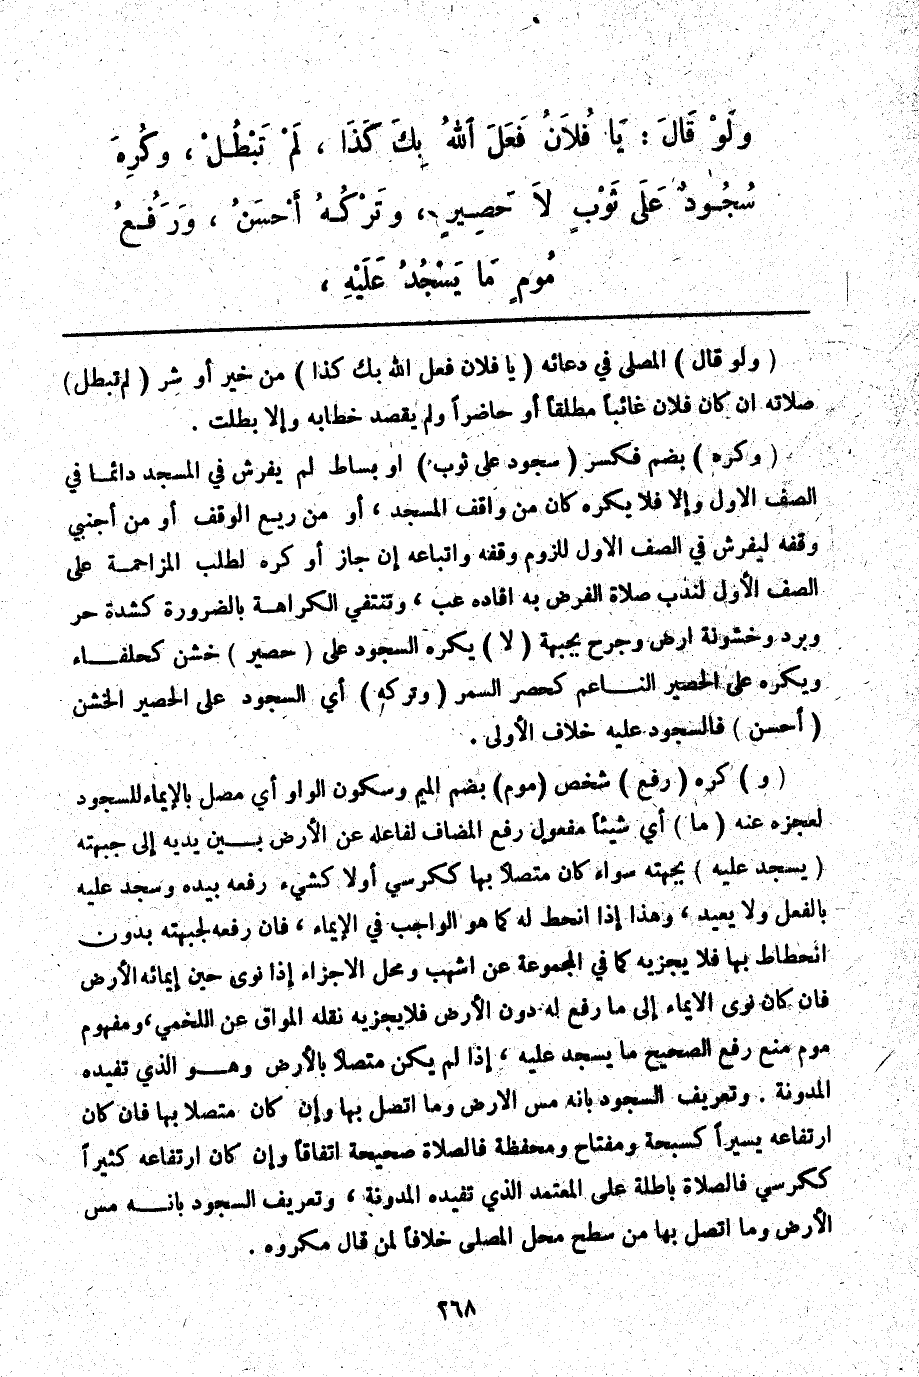 ولَوْ قَالَ : يَا فُلاَنُ فَعَلَ اللهُ بِكَ كَذَا ، لَمْ تَبْطُلْ ، وكُرِهَ
سُجُودٌ عَلَى ثَوْبٍ لاَ حَصِيرٍ ، وتَرْكُهُ أَحْسَنُ ، وَرَفْعُ
مُومٍ مَا يَسْجُدُ عَلَيْهِ ،
( ولو قال ) المصلى في دعائه ( يا فلان فعل الله بك كذا ) من خير أو شر ( لم تبطل )
صلاته ان كان فلان غائباً مطلقاً أو حاضراً ولم يقصد خطابه وإلا بطلت .
( وكره ) بضم فكسر ( سجود على ثوب ) او بساط لم يفرش في المسجد دائمـا في
الصف الاول وإلا فلا يكره كان من واقف المسجد ، أو من ريع الوقف أو من أجنبي
وقفه ليفرش في الصف الاول للزوم وقفه واتباعه إن جاز أو كره لطلب المزاحمـة على
الصف الأول لندب صلاة الفرض به افاده عب ، وتنتفي الكراهـة بالضرورة كشدة حر
وبرد وخشونة ارض وجرح بجبهة ( لا ) يكره السجود على ( حصير ) خشن كحلفـــاء
ويكره على الحصير النـــاعم كحصر السمر ( وتركه ) أي السجود على الحصير الخشن
( أحسن ) فالسجود عليه خلاف الأولى .
( و ) كره ( رفع ) شخص (موم) بضم الميم وسكون الواو أي مصل بالإيماء للسجود
لعجزه عنه ( ما ) أي شيئاً مفعول رفع المضاف لفاعله عن الأرض بـــين يديه إلى جبهته
( يسجد عليه ) بجبهته سواء كان متصلاً بها ككرسي أولا كشيء رفعه بيده وسجد عليه
بالفعل ولا يعيد ، وهذا إذا انحط له كما هو الواجب في الإيماء ، فان رفعه لجبهته بدون
انحطاط بها فلا يجزيه كما في المجموعة عن اشهب ومحل الاجزاء إذا نوى حين إيمائه الأرض
فان كان نوى الايماء إلى ما رفع له دون الأرض فلايجزيه نقله المواق عن اللخمي، ومفهوم
موم منع رفع الصحيح ما يسجد عليه ، إذا لم يكن متصلاً بالأرض وهـــو الذي تفيده
المدونة . وتعريف السجود بانه مس الارض وما اتصل بها وإن كان متصلا بها فان كان
ارتفاعه يسيراً كسبحة ومفتاح ومحفظة فالصلاة صحيحة اتفاقاً وإن كان ارتفاعه كثيراً
ككرسي فالصلاة باطلة على المعتمد الذي تفيده المدونة ، وتعريف السجود بانـــه مس
الأرض وما اتصل بها من سطح محل المصلى خلافاً لمن قال مكروه .
٢٦٨